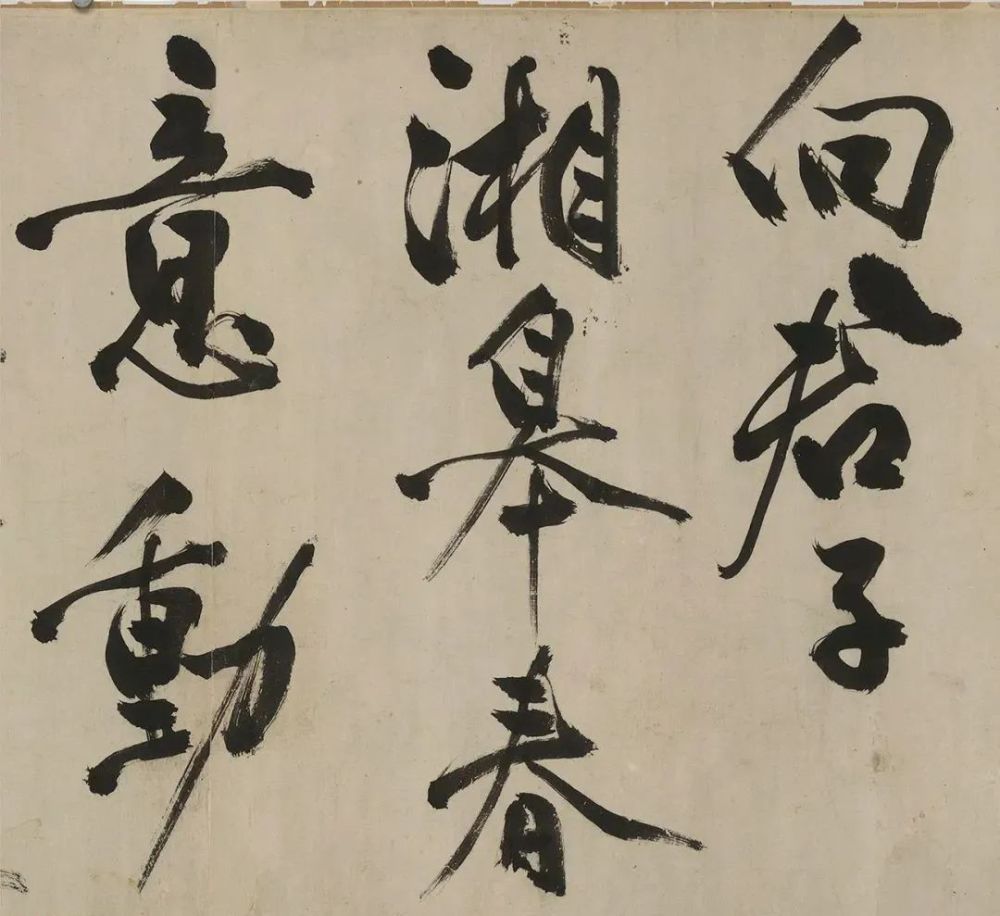 向君子
湘皋春
意動